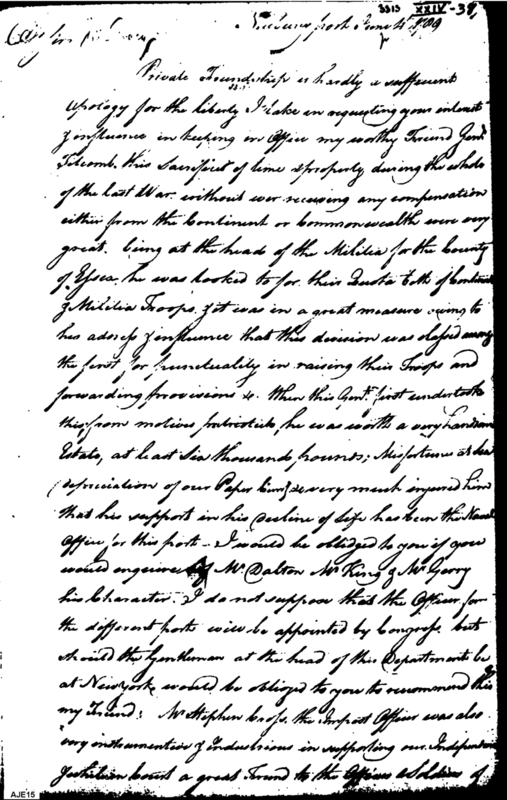 3315 XXIV-39,
Newbury port June 4th 1789
Private Friendship is hardly a sufficient
apology for the liberty I take in requesting your interest
& influence in keeping in Office my worthy Friend Genl.
Titcomb, this Sacrifices of time & property during the whole
of the last War without ever receiving any compensation
either from the Continent or Commonwealth were very
great. being at the head of the Militia for the County
of Essex, he was looked to for their Quota both of Continl
& Militia Troops, & it was in a great measure owing to
his address & influence that this division was classed among
the first for punctuality in raising their Troops and
forwarding provisions &c. When this Gent. first undertook
this from motives patriotick, he was worth a very handsome
Estate, at least Six thousand pounds; Misfortunes at Sea
depreciation of our Paper &c very much injured him
that his support in his decline of life has been the Naval
Office for this port — I would be obliged to you if you
would enquire of Mr. Dalton Mr. King & Mr. Gerry
his Character. I do not suppose that the Officers for
the different ports will be appointed by Congress, but
should the Gentleman at the head of this Department be
at New York, would be obliged to you to recommend this
my Friend; Mr. Stephen Cross, the Impost Officer was also
very instrumental & Industrious in supporting our Independence
a great Friend to the Officers & Soldiers of
AJE15